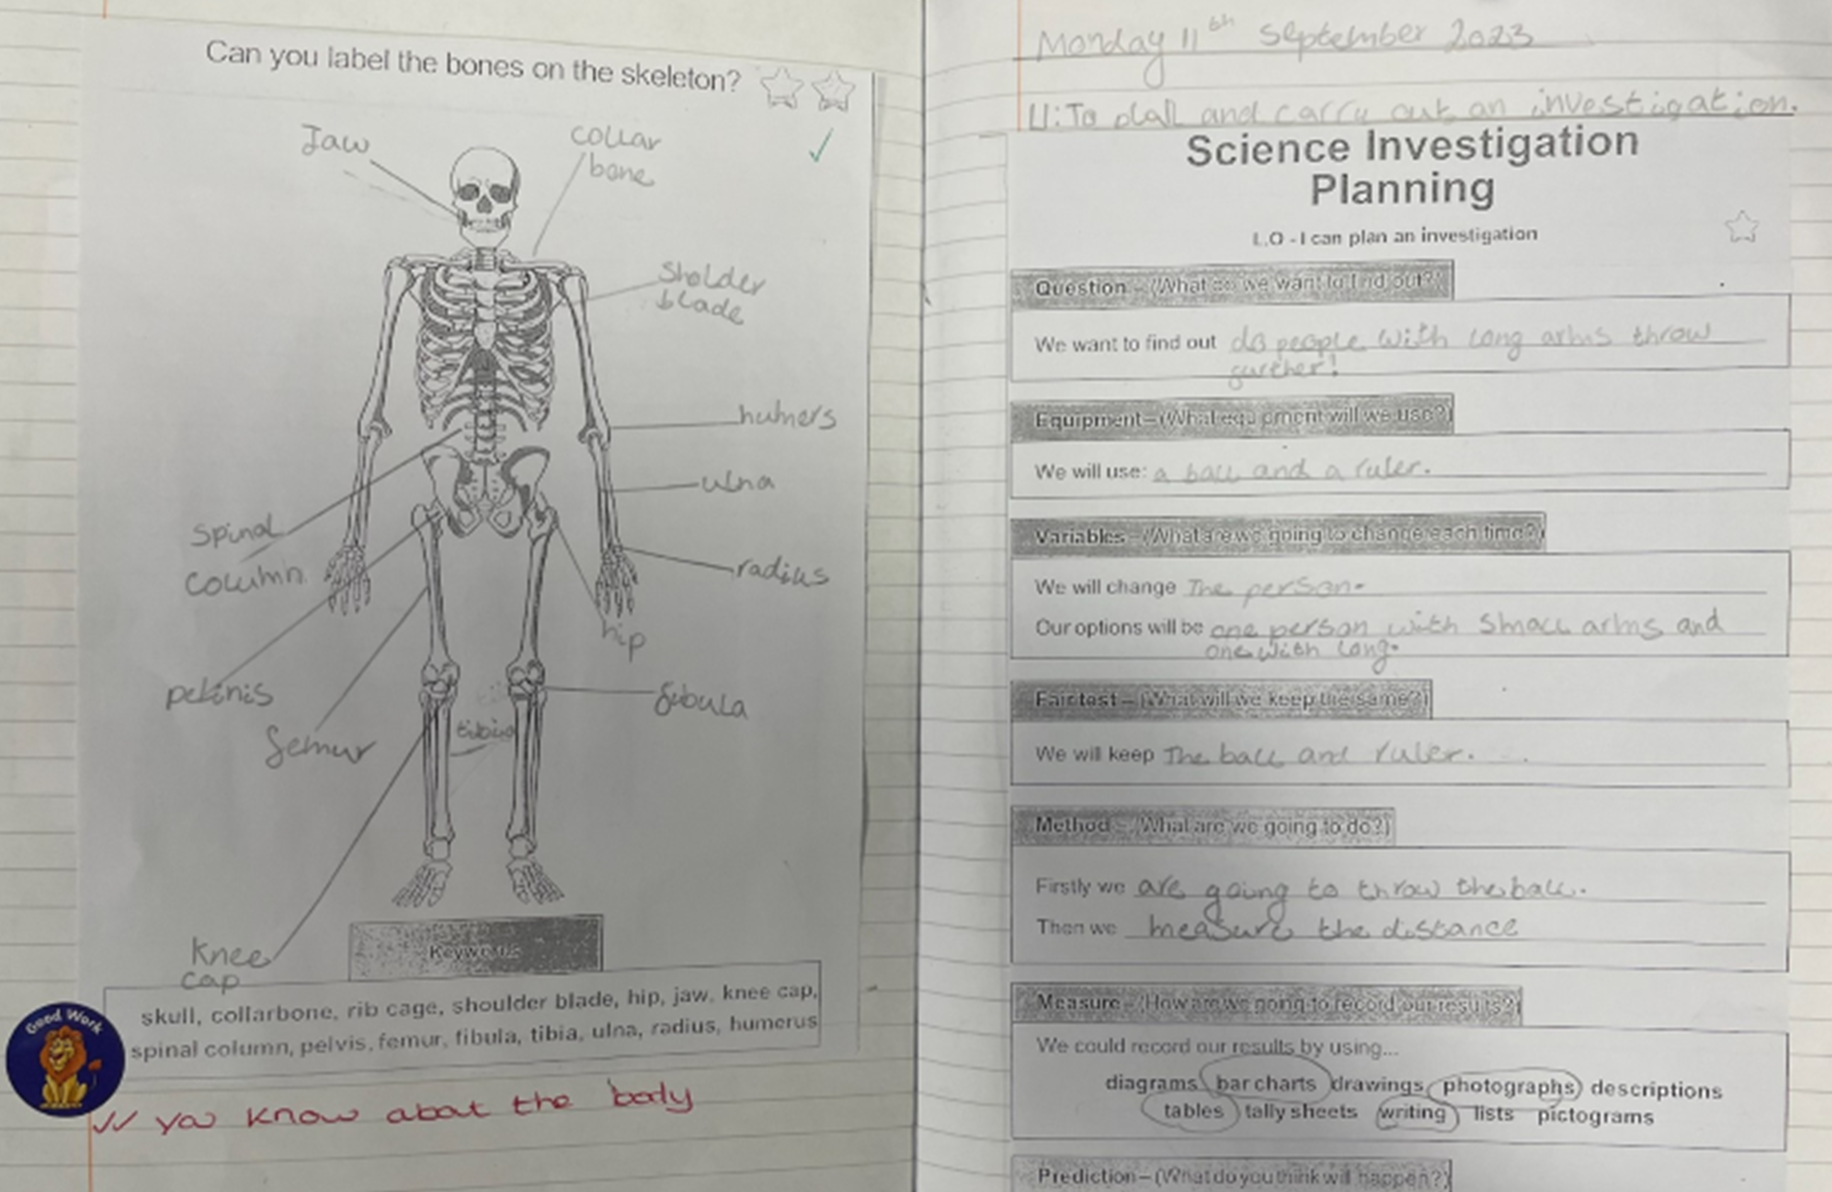 Can you label the bones on the skeleton?
Jaw
collar
bone
Sholder
blade
humers
ulna
spinal
column
radius
hip
pelinis
femur
fibula
tibia
Knee
cap
Keywords
skull, collarbone, rib cage, shoulder blade, hip, jaw, knee cap,
spinal column, pelvis, femur, fibula, tibia, ulna, radius, humerus
Good Work
you know about the body
Monday 11th September 2023
LI: To plan and carry out an investigation.
Science Investigation
Planning
L.O - I can plan an investigation
Question – (What do we want to find out?)
We want to find out do people with long arms throw
further!
Equipment – (What equipment will we use?)
We will use: a ball and a ruler.
Variables – (What are we going to change each time?)
We will change The person.
Our options will be one person with small arms and
one with long.
Fair test – (What will we keep the same?)
We will keep The ball and ruler.
Method – (What are we going to do?)
Firstly we are going to throw the ball.
Then we measure the distance
Measure – (How are we going to record our results?)
We could record our results by using...
diagrams bar charts drawings photographs descriptions
tables tally sheets writing lists pictograms
Prediction – (What do you think will happen?)